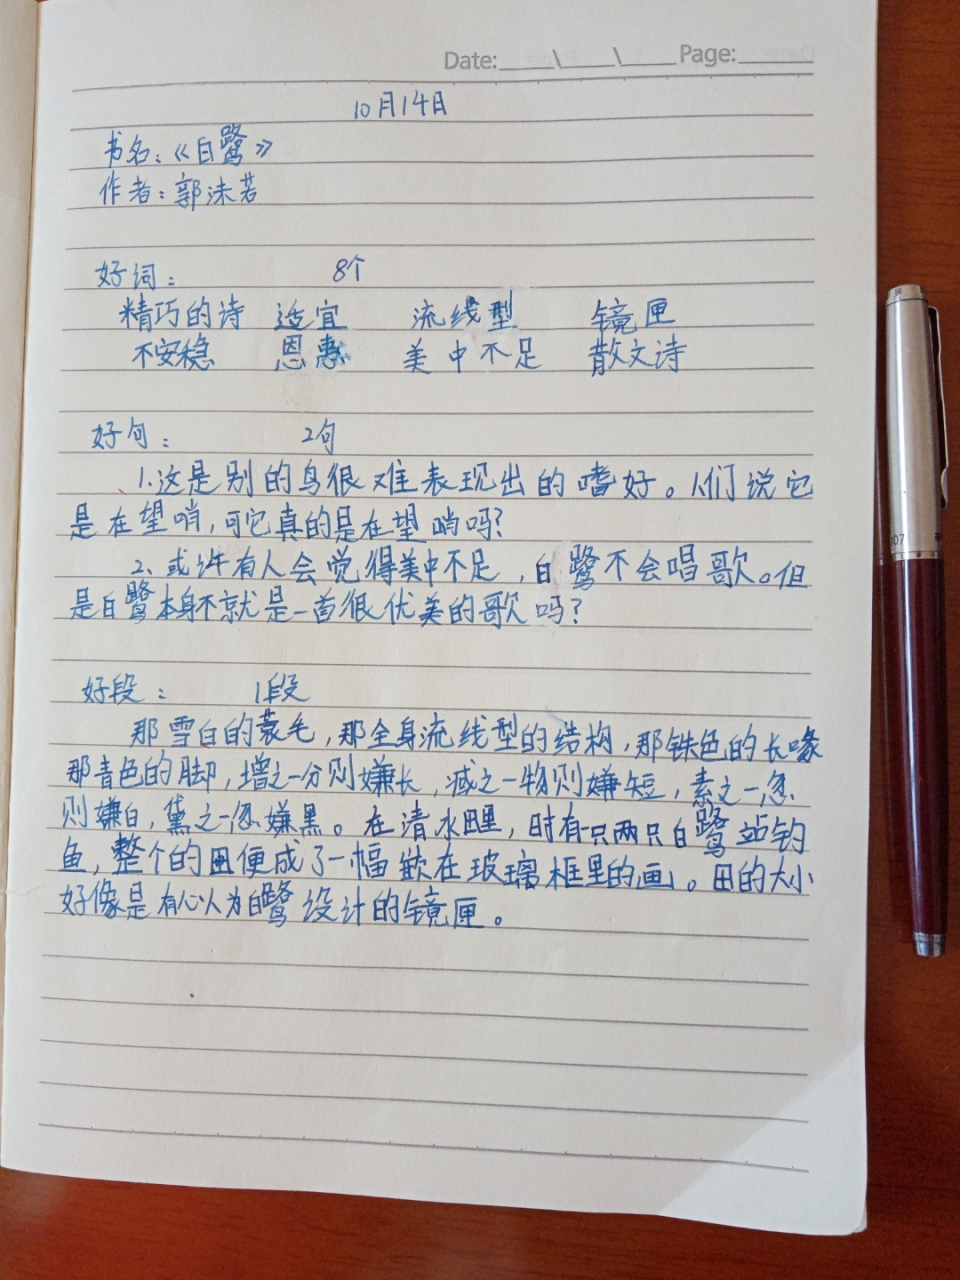 Date:____\____\____Page:_____
10月14日
书名：《白鹭》
作者：郭沫若
好词： 8个
精巧的诗 适宜 流线型 镜匣
不安稳 恩惠 美中不足 散文诗
好句： 2句
1.这是别的鸟很难表现出的嗜好。人们说它
是在望哨，可它真的是在望哨吗？
2、或许有人会觉得美中不足，白鹭不会唱歌。但
是白鹭本身不就是一首很优美的歌吗？
好段： 1段
那雪白的蓑毛，那全身流线型的结构，那铁色的长喙
那青色的脚，增之一分则嫌长，减之一物则嫌短，素之一忽
则嫌白，黛之一忽嫌黑。在清水田里，时有一只两只白鹭站钓
鱼，整个的田便成了一幅嵌在玻璃框里的画。田的大小
好像是有心人为白鹭设计的镜匣。
07